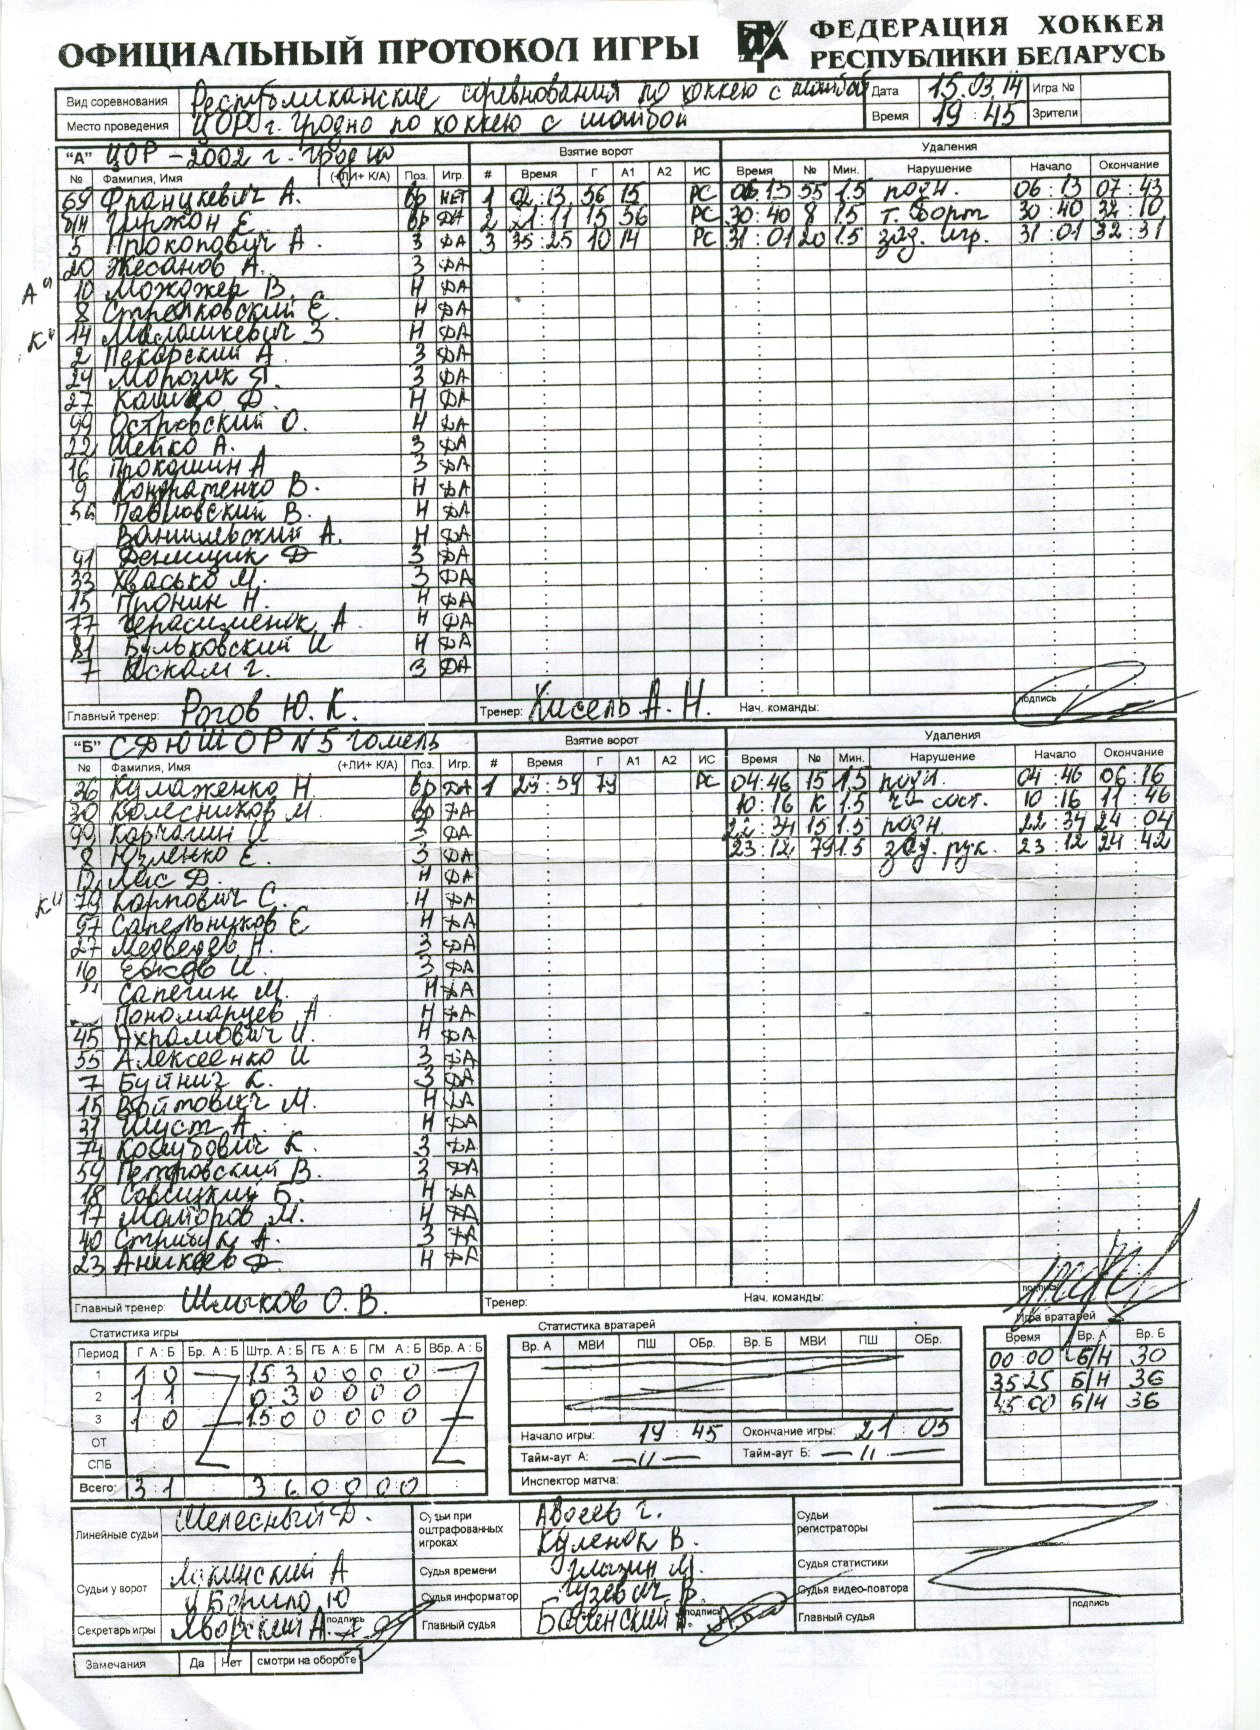 ОФИЦИАЛЬНЫЙ ПРОТОКОЛ ИГРЫ
ФЕДЕРАЦИЯ ХОККЕЯ
РЕСПУБЛИКИ БЕЛАРУСЬ
Вид соревнования Республиканские соревнования по хоккею с шайбой Дата 15.03.14 Игра №
Место проведения ЦОР г. Гродно по хоккею с шайбой Время 19:45 Зрители
"А" ЦОР - 2002 г. Гродно Взятие ворот Удаления
№ Фамилия, Имя (+ЛИ+ К/А) Поз. Игр. # Время Г А1 А2 ИС Время № Мин. Нарушение Начало Окончание
69 Францкевич А. Вр НЕТ 1 02:13 56 15 РС 06:13 55 1.5 подн. 06:13 07:43
б/н Гиржон Е. Вр ДА 2 21:11 15 56 РС 30:40 8 1.5 т. борт 30:40 32:10
5 Прокопович А. З ДА 3 35:25 10 14 РС 31:01 20 1.5 зад. игр. 31:01 32:31
20 Жесанов А. З ДА
"А" 10 Можджер В. Н ДА
8 Стрелковский Е. Н ДА
"К" 14 Малашкевич З Н ДА
2 Пекарский А З ДА
24 Морозик Я. З ДА
27 Кашко Ф. Н ДА
99 Островский О. Н ДА
22 Шейко А. З ДА
16 Прокошин А З ДА
9 Кондратенко В. Н ДА
56 Павловский В. Н ДА
А. Н ДА
91 Денищик Д З ДА
33 Хвасько М. З ДА
15 Пронин Н. Н ДА
77 Герасименок А. Н ДА
81 Бульковский И Н ДА
7 Юскам Г. З ДА
Главный тренер: Рогов Ю. К. Тренер: Кисель А. Н. Нач. команды: подпись
"Б" СДЮШОР №5 Гомель Взятие ворот Удаления
№ Фамилия, Имя (+ЛИ+ К/А) Поз. Игр. # Время Г А1 А2 ИС Время № Мин. Нарушение Начало Окончание
36 Кулаженко Н. Вр ДА 1 23:59 79 РС 04:46 15 1.5 подн. 04:46 06:16
30 Колесников М. Вр ДА 10:16 К 1.5 чис. сост. 10:16 11:46
99 Карчагин И З ДА 22:34 15 1.5 подн. 22:34 24:04
8 Юзленко Е. З ДА 23:12 79 1.5 зад. рук. 23:12 24:42
12 Лис Д. Н ДА
"К" 79 Карпович С. Н ДА
97 Сапельников Е Н ДА
27 Медведев Н. З ДА
16 Ежков И. З ДА
Сапегин М Н ДА
Пономарцев А Н ДА
45 Ахрамович И. Н ДА
55 Алексеенко И З ДА
7 Буйниц К. З ДА
15 Войтович М. Н ДА
31 Шуст А. Н ДА
74 Кошубович К. З ДА
59 Петровский В. З ДА
18 Совицкий Б. Н ДА
17 Маторов М. Н ДА
40 Стригук А. З ДА
23 Аникеев Ф. Н ДА
Главный тренер: Шлыков О. В. Тренер: Нач. команды: подпись
Статистика игры Статистика вратарей Игра вратарей
Период Г А:Б Бр. А:Б Штр. А:Б ГБ А:Б ГМ А:Б Вбр. А:Б Вр. А МВИ ПШ ОБр. Вр. Б МВИ ПШ ОБр. Время Вр. А Вр. Б
1 1:0 1.5:3 0:0 0:0 00:00 Б/Н 30
2 1:1 0:3 0:0 0:0 35:25 Б/Н 36
3 1:0 1.5:0 0:0 0:0 45:00 Б/Н 36
ОТ Начало игры: 19:45 Окончание игры: 21:05
СПБ Тайм-аут А: —//— Тайм-аут Б: —//—
Всего: 3:1 3:6 0:0 0:0 Инспектор матча:
Линейные судьи Шелесный Д. Судьи при оштрафованных игроках Авсеев Г. Судьи регистраторы
Куленок В.
Судьи у ворот А Судья времени Глазин М. Судья статистики
Борило Ю Судья информатор Гузевич В. Судья видео-повтора
Секретарь игры Яворский А. подпись Главный судья подпись Главный судья подпись
Замечания Да Нет смотри на обороте